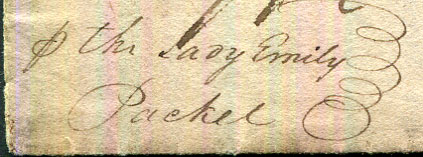 ₱ the Lady Emily
Packet